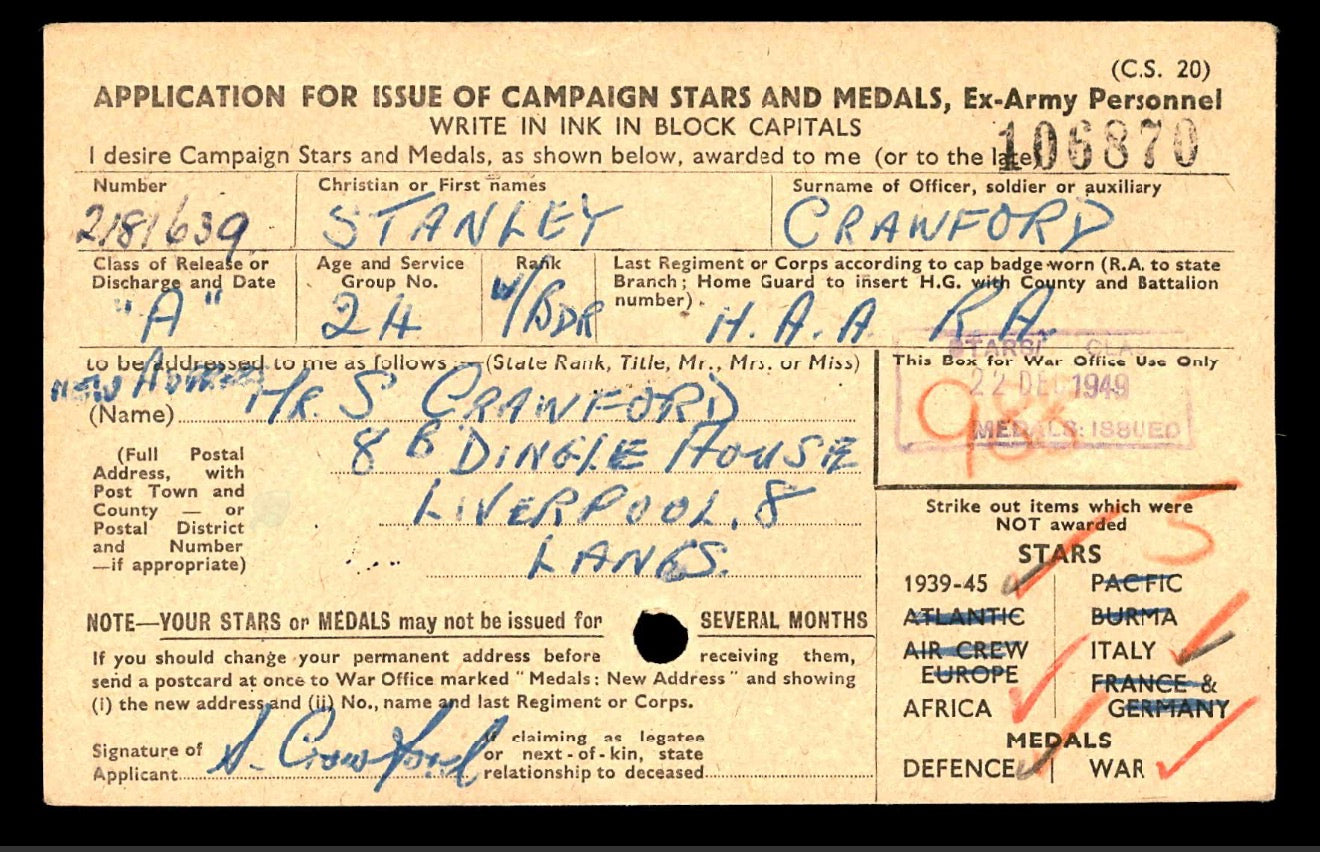 (C.S. 20)
APPLICATION FOR ISSUE OF CAMPAIGN STARS AND MEDALS, Ex-Army Personnel
WRITE IN INK IN BLOCK CAPITALS
106870
I desire Campaign Stars and Medals, as shown below, awarded to me (or to the late)
Number Christian or First names Surname of Officer, soldier or auxiliary
2181639 STANLEY CRAWFORD
Class of Release or Discharge and Date
"A"
Age and Service Group No.
24
Rank
W/BDR
Last Regiment or Corps according to cap badge worn (R.A. to state
Branch; Home Guard to insert H.G. with County and Battalion
number).
H.A.A R.A.
to be addressed to me as follows :—(State Rank, Title, Mr., Mrs. or Miss)
NEW ADDRESS
(Name) MR. S CRAWFORD
(Full Postal
Address, with
Post Town and
County — or
Postal District
and Number
—if appropriate)
8 B DINGLE HOUSE
LIVERPOOL. 8
LANCS.
This Box for War Office Use Only
22 DEC 1949
MEDALS ISSUED
988
NOTE—YOUR STARS or MEDALS may not be issued for SEVERAL MONTHS
If you should change your permanent address before receiving them,
send a postcard at once to War Office marked "Medals: New Address" and showing
(i) the new address and (ii) No., name and last Regiment or Corps.
Signature of
Applicant S. Crawford
If claiming as legatee
or next-of-kin, state
relationship to deceased
Strike out items which were
NOT awarded
5
STARS
1939-45 PACIFIC
ATLANTIC BURMA
AIR CREW EUROPE ITALY
AFRICA FRANCE & GERMANY
MEDALS
DEFENCE WAR